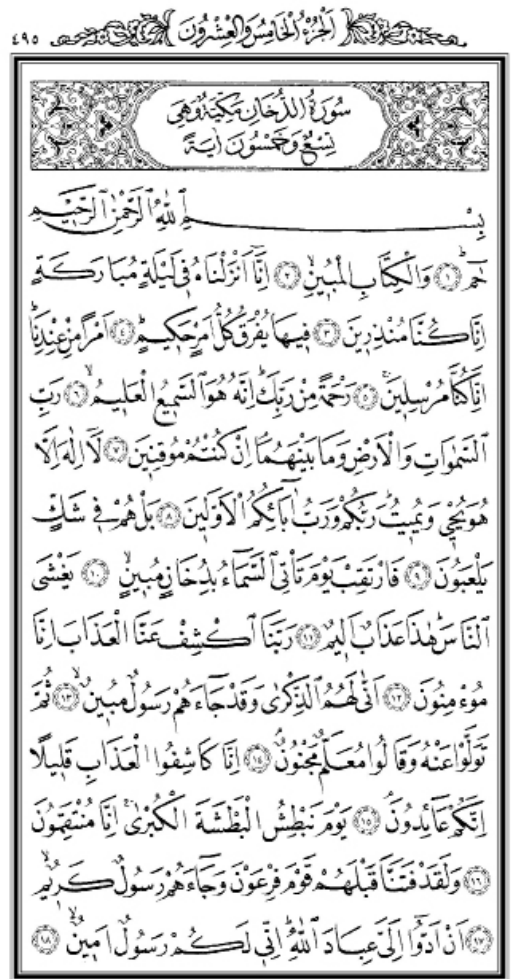 الجزء الخامس والعشرون
٤٩٥
سورة الدخان مكية وهي
تسع وخمسون اية
بِسْمِ اللهِ الرَّحْمٰنِ الرَّحِيمِ
حٰمٓ ﴿١﴾ وَالْكِتَابِ الْمُبِينِ ﴿٢﴾ اِنَّٓا اَنْزَلْنَاهُ فِي لَيْلَةٍ مُبَارَكَةٍ
اِنَّا كُنَّا مُنْذِرِينَ ﴿٣﴾ فِيهَا يُفْرَقُ كُلُّ اَمْرٍ حَكِيمٍ ﴿٤﴾ اَمْرًا مِنْ عِنْدِنَا
اِنَّا كُنَّا مُرْسِلِينَ ﴿٥﴾ رَحْمَةً مِنْ رَبِّكَ اِنَّهُ هُوَ السَّمِيعُ الْعَلِيمُ ﴿٦﴾ رَبِّ
السَّمٰوَاتِ وَالْاَرْضِ وَمَا بَيْنَهُمَا اِنْ كُنْتُمْ مُوقِنِينَ ﴿٧﴾ لَٓا اِلٰهَ اِلَّا
هُوَ يُحْيِي وَيُمِيتُ رَبُّكُمْ وَرَبُّ اٰبَٓائِكُمُ الْاَوَّلِينَ ﴿٨﴾ بَلْ هُمْ فِي شَكٍّ
يَلْعَبُونَ ﴿٩﴾ فَارْتَقِبْ يَوْمَ تَأْتِي السَّمَٓاءُ بِدُخَانٍ مُبِينٍ ﴿١٠﴾ يَغْشَى
النَّاسَ هٰذَا عَذَابٌ اَلِيمٌ ﴿١١﴾ رَبَّنَا اكْشِفْ عَنَّا الْعَذَابَ اِنَّا
مُؤْمِنُونَ ﴿١٢﴾ اَنّٰى لَهُمُ الذِّكْرٰى وَقَدْ جَٓاءَهُمْ رَسُولٌ مُبِينٌ ﴿١٣﴾ ثُمَّ
تَوَلَّوْا عَنْهُ وَقَالُوا مُعَلَّمٌ مَجْنُونٌ ﴿١٤﴾ اِنَّا كَاشِفُوا الْعَذَابِ قَلِيلًا
اِنَّكُمْ عَٓائِدُونَ ﴿١٥﴾ يَوْمَ نَبْطِشُ الْبَطْشَةَ الْكُبْرٰى اِنَّا مُنْتَقِمُونَ
﴿١٦﴾ وَلَقَدْ فَتَنَّا قَبْلَهُمْ قَوْمَ فِرْعَوْنَ وَجَٓاءَهُمْ رَسُولٌ كَرِيمٌ
﴿١٧﴾ اَنْ اَدُّٓوا اِلَيَّ عِبَادَ اللهِ اِنِّي لَكُمْ رَسُولٌ اَمِينٌ ﴿١٨﴾